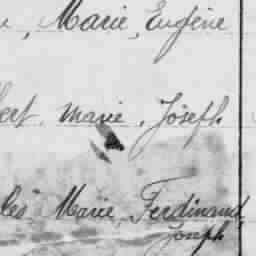 , Marie, Eugène
bert, Marie, Joseph
les Marie, Ferdinand,
Joseph